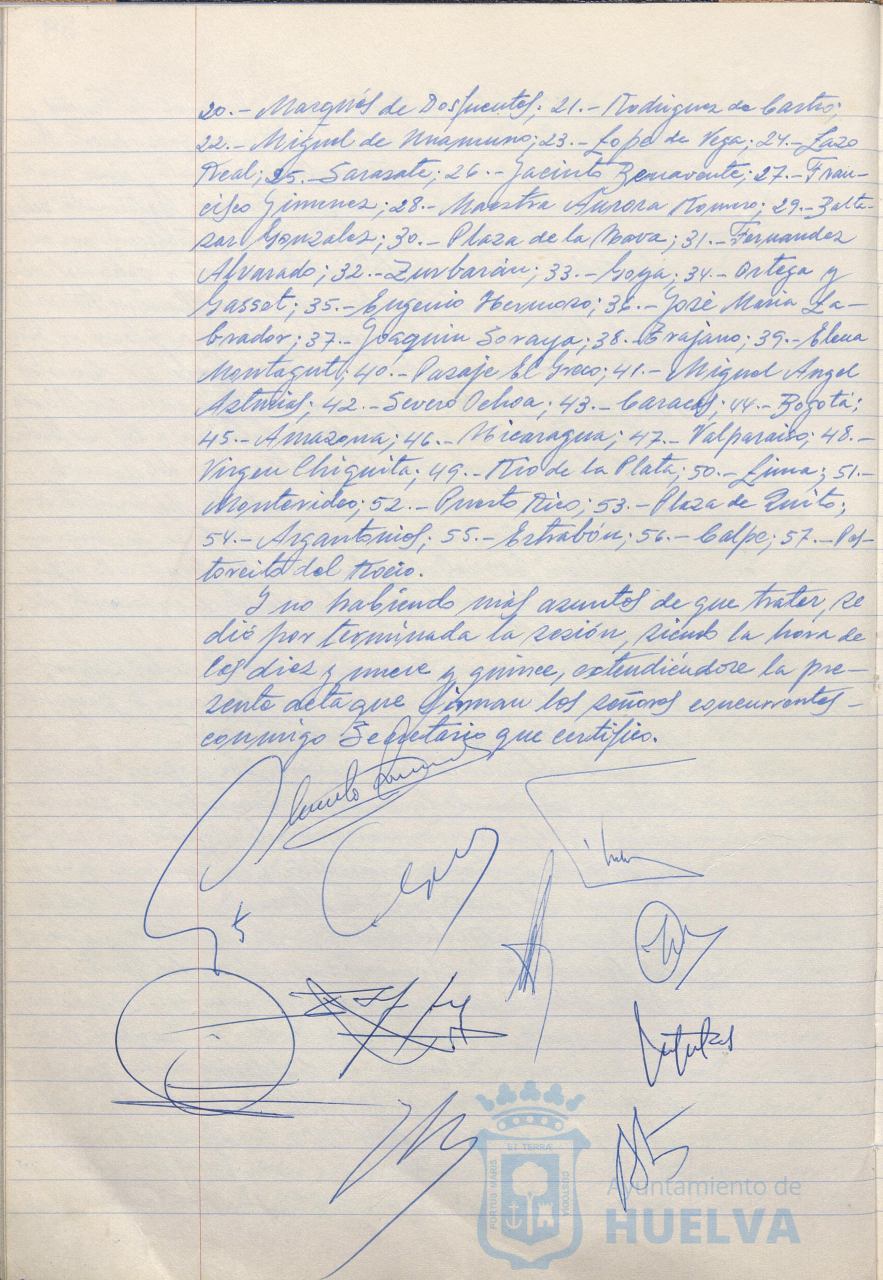 20.- Marqués de Dosfuentes; 21.- Rodriguez de Castro;
22.- Miguel de Unamuno; 23.- Lope de Vega; 24.- Lazo
Real; 25.- Sarasate; 26.- Jacinto Benavente; 27.- Fran-
cisco Gimenez; 28.- Maestra Aurora Romero; 29.- Balta-
sar Gonzalez; 30.- Plaza de la Nava; 31.- Fernandez
Alvarado; 32.- Zurbarán; 33.- Goya; 34.- Ortega y
Gasset; 35.- Eugenio Hermoso; 36.- José Maria La-
brador; 37.- Joaquin Soroya; 38.- Trajano; 39.- Elena
Montagut; 40.- Pasaje El Greco; 41.- Miguel Angel
Asturias; 42.- Severo Ochoa; 43.- Caracas; 44.- Bogotá;
45.- Amazona; 46.- Nicaragua; 47.- Valparaiso; 48.-
Virgen Chiquita; 49.- Rio de la Plata; 50.- Lima; 51.-
Montevideo; 52.- Puerto Rico; 53.- Plaza de Quito;
54.- Argantonios; 55.- Estrabón; 56.- Calpe; 57.- Pas-
torcito del Rocio.
Y no habiendo más asuntos de que tratar, se
dió por terminada la sesión, siendo la hora de
las diez y nueve y quince, extendiéndose la pre-
sente acta que firman los señores concurrentes -
conmigo Secretario que certifico.
ET TERRA
PORTUS MARIS
CUSTODIA
Ayuntamiento de
HUELVA